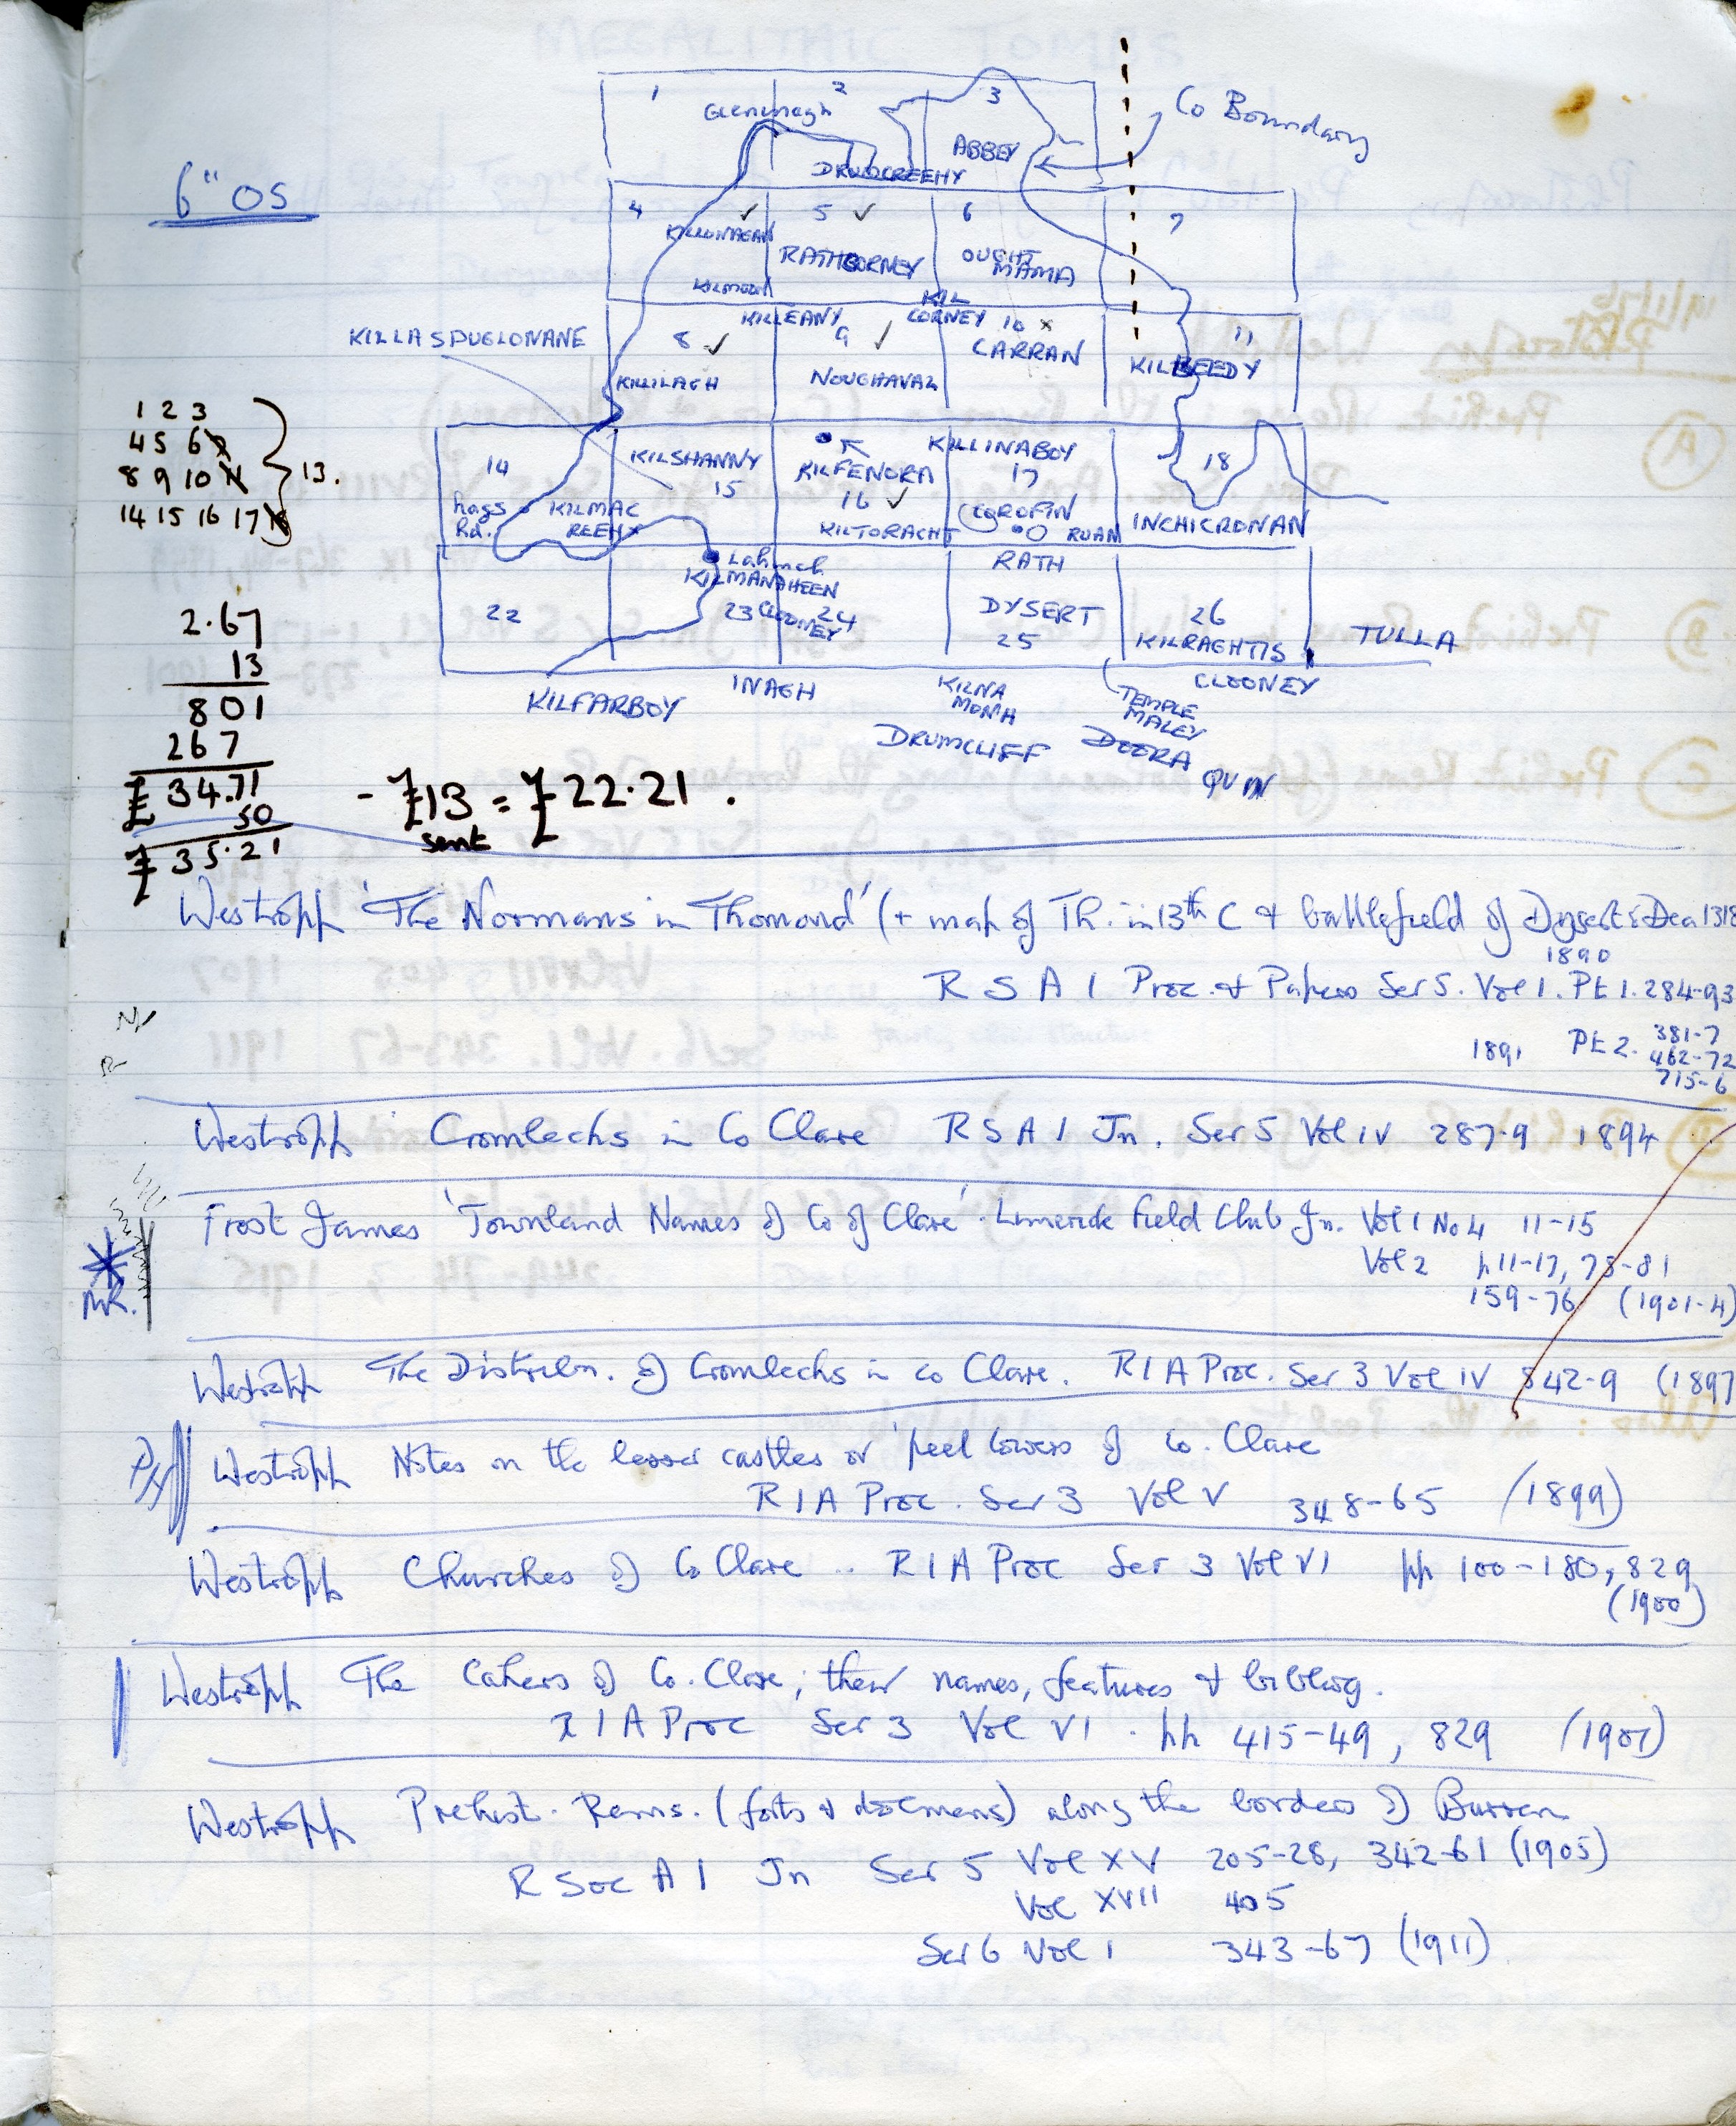 6" OS
1 2 3
Gleninagh
ABBEY
DRUMCREEHY
Co Boundary
4 5 6 7
KILLONAGHAN
RATHBORNEY
OUGHT
MAMA
KILMOON
KILLEANY
KIL
CORNEY
KILLASPUGLONANE
8 9 10 x 11
CARRAN
KILBEEDY
KILLILAGH
NOUGHAVAL
14
Hags
Hd.
KILMAC
REEHY
KILSHANNY
15
KILFENORA
16
KILTORACHT
KILLINABOY
17
COROFIN
RUAN
18
INCHICRONAN
Lahinch
KILMANAHEEN
22
23 CLOONEY 24
RATH
DYSERT
25
26
KILRAGHTIS
TULLA
KILFARBOY
INAGH
KILNA
MONA
DRUMCLIFF
TEMPLE
MALEY
DOORA
CLOONEY
QUIN
1 2 3
4 5 6
8 9 10
14 15 16 17
13.
2.67
13
801
267
£ 34.71
50
£ 35.21
- £13 = £22.21.
sent
Westropp 'The Normans in Thomond' (+ map of Th. in 13th C & battlefield of Dysert O'Dea 1318
1890
R S A I Proc. & Papers Ser 5. Vol 1. Pt 1. 284-93
1891 Pt 2. 381-7
462-72
715-6
Westropp Cromlechs in Co Clare R S A I Jn. Ser 5 Vol IV 287-9 1894
Frost James 'Townland Names of Co of Clare'. Limerick Field Club Jn. Vol 1 No 4 11-15
Vol 2 p 11-17, 75-81
159-76 (1901-4)
MR.
Westropp The Distribn. of Cromlechs in Co Clare. R I A Proc. Ser 3 Vol IV 542-9 (1897
Westropp Notes on the lesser castles or 'peel towers of Co. Clare
R I A Proc. Ser 3 Vol V 348-65 (1899)
Westropp Churches of Co Clare .. R I A Proc Ser 3 Vol VI pp 100-180, 829
(1900)
Westropp The Cahers of Co. Clare; their names, features & bibliog.
R I A Proc Ser 3 Vol VI. pp 415-49, 829 (1901)
Westropp Prehist. Rems. (forts & dolmens) along the borders of Burren
R Soc A I Jn Ser 5 Vol XV 205-28, 342-61 (1905)
Vol XVII 405
Ser 6 Vol 1 343-67 (1911)